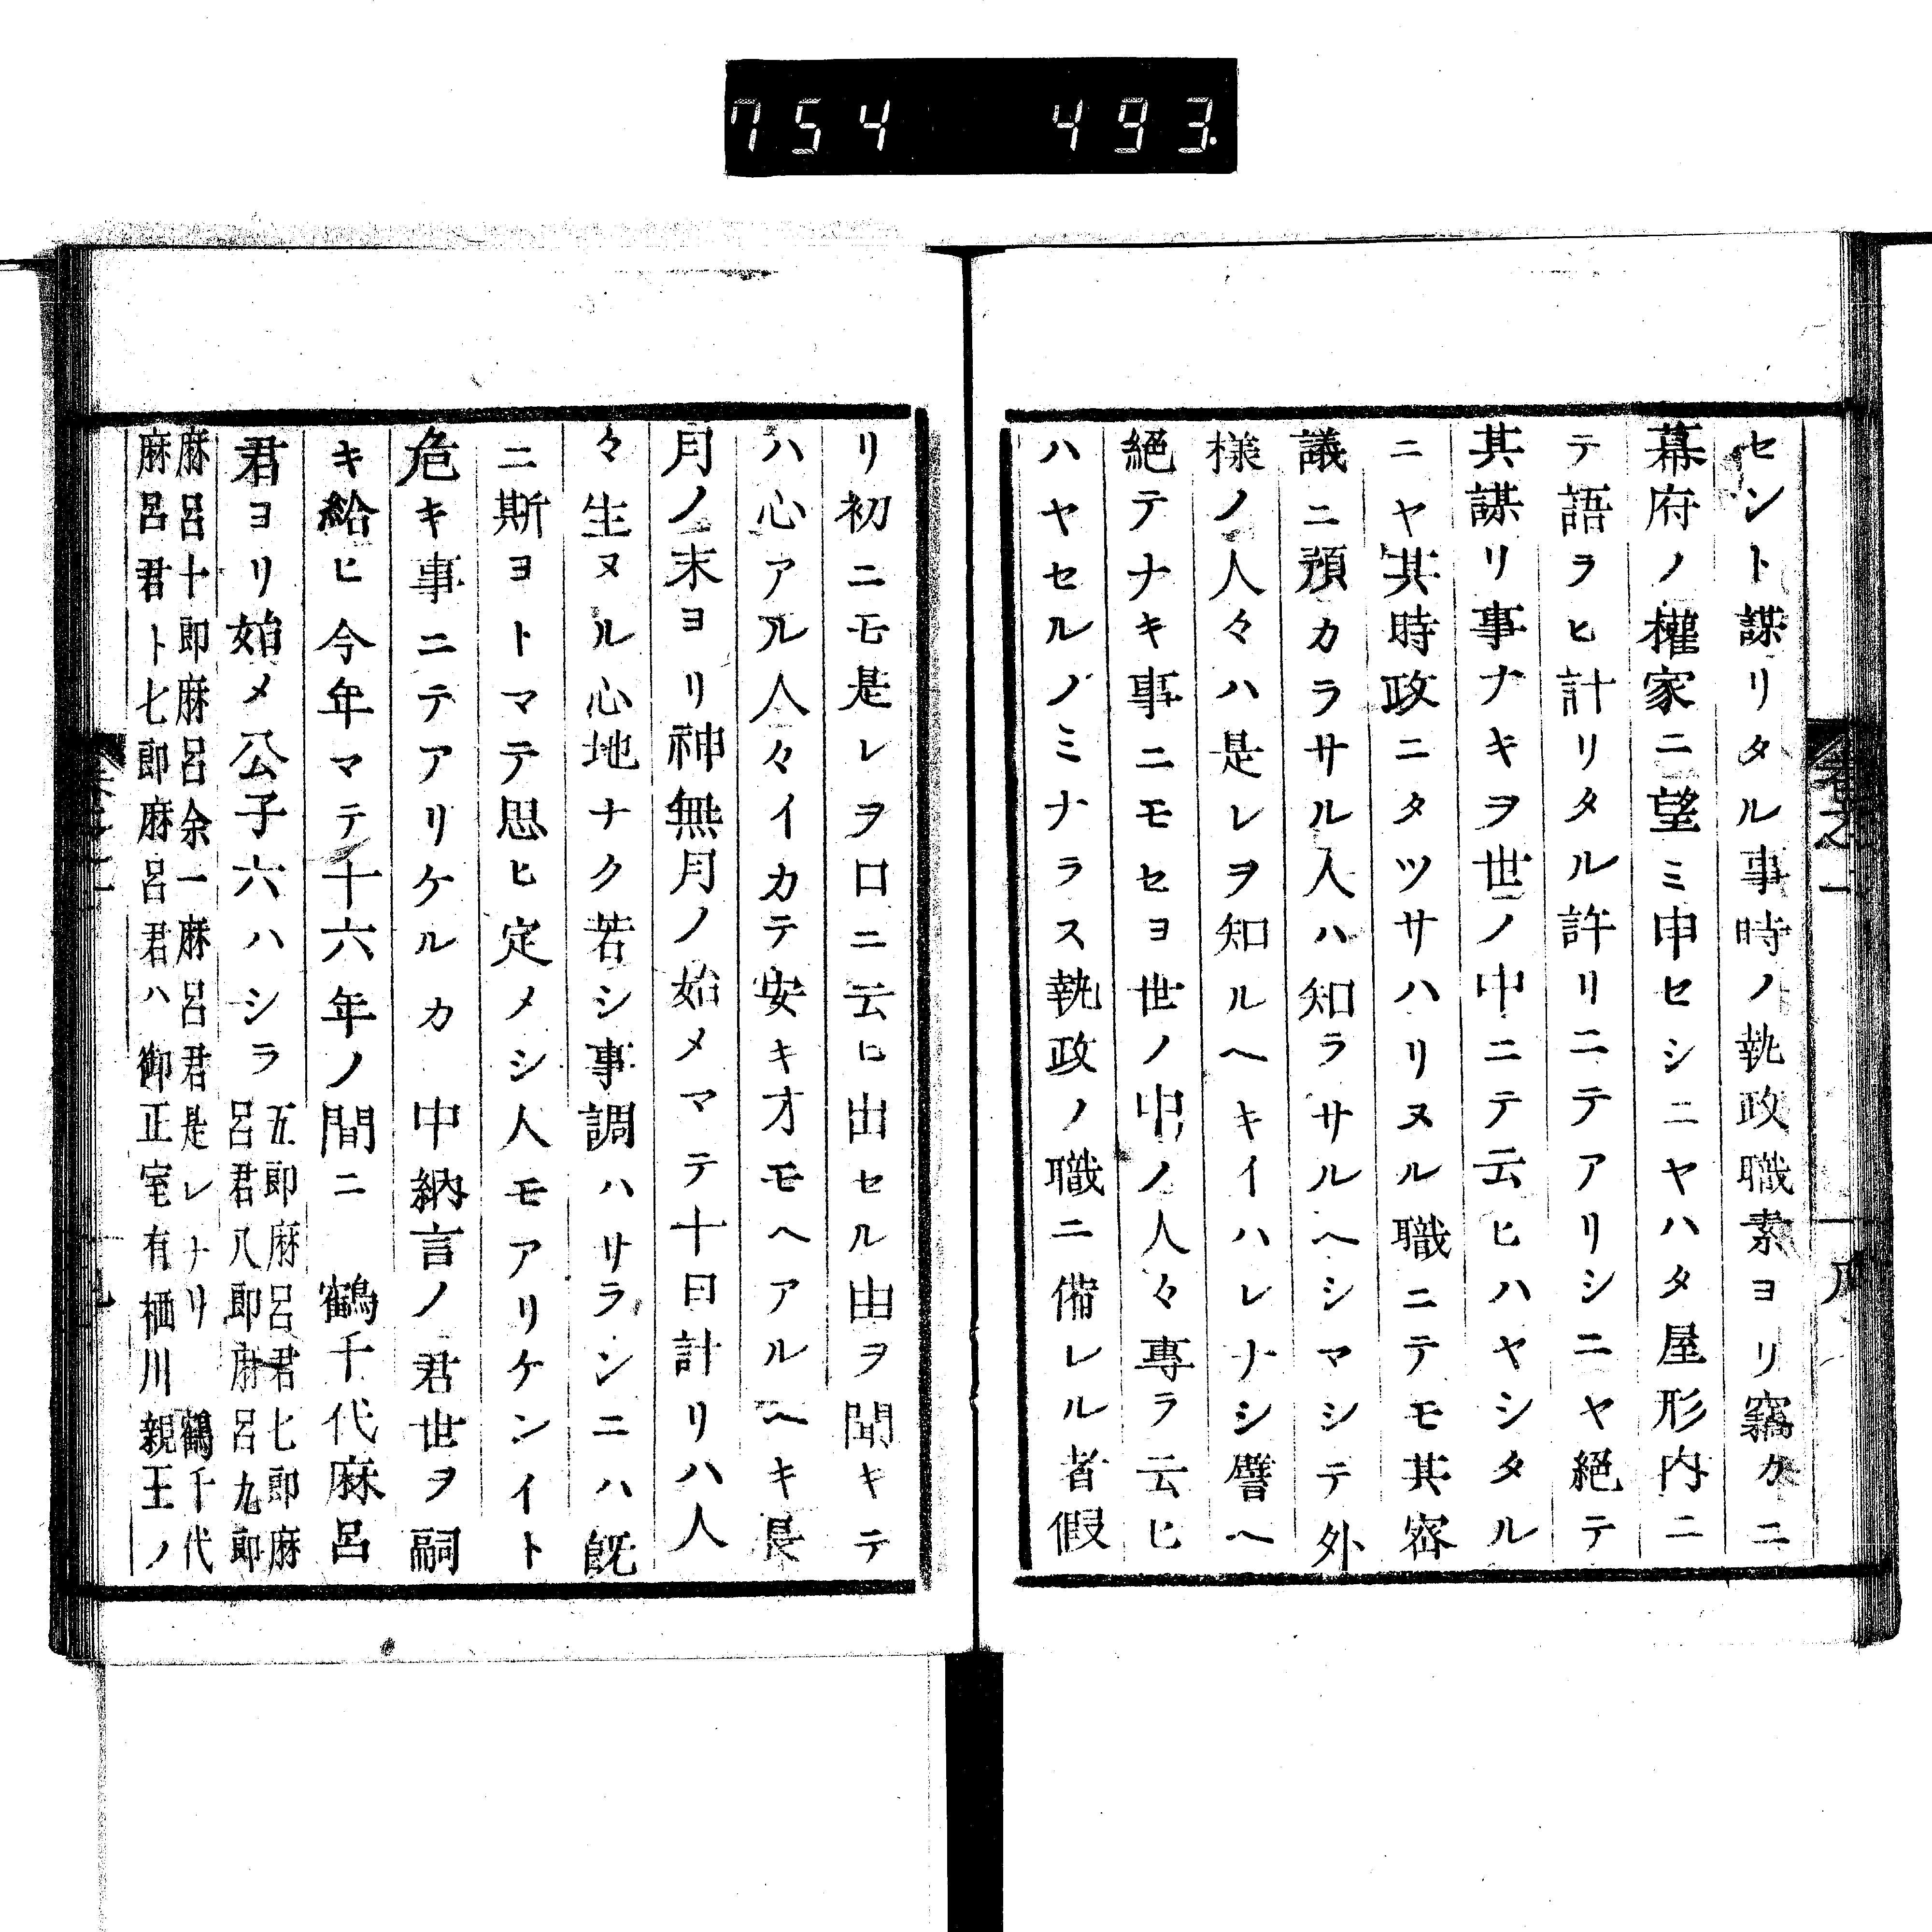 754 493.
セント謀リタル事時ノ執政職素ヨリ竊カニ
幕府ノ權家ニ望ミ申セシニヤハタ屋形内ニ
テ語ラヒ計リタル許リニテアリシニヤ絕テ
其謀リ事ナキヲ世ノ中ニテ云ヒハヤシタル
ニヤ其時政ニタツサハリヌル職ニテモ其密
議ニ預カラサル人ハ知ラサルヘシマシテ外
樣ノ人々ハ是レヲ知ルヘキイハレナシ譬ヘ
絕テナキ事ニモセヨ世ノ中ノ人々專ラ云ヒ
ハヤセルノミナラス執政ノ職ニ備レル者假
リ初ニモ是レヲロニ云ヒ出セル由ヲ聞キテ
ハ心アル人々イカテ安キオモヘアルヘキ長
月ノ末ヨリ神無月ノ始メマテ十日計リハ人
々生ヌル心地ナク若シ事調ハサランニハ既
ニ斯ヨトマテ思ヒ定メシ人モアリケンイト
危キ事ニテアリケルカ 中納言ノ君世ヲ嗣
キ給ヒ今年マテ十六年ノ間ニ 鶴千代麻呂
君ヨリ始メ公子六ハシラ
五郎麻呂君七郎麻
呂君八郎麻呂九郎
麻呂十郎麻呂余一麻呂君是レナリ 鶴千代
麻呂君ト七郎麻呂君ハ御正室有栖川親王ノ